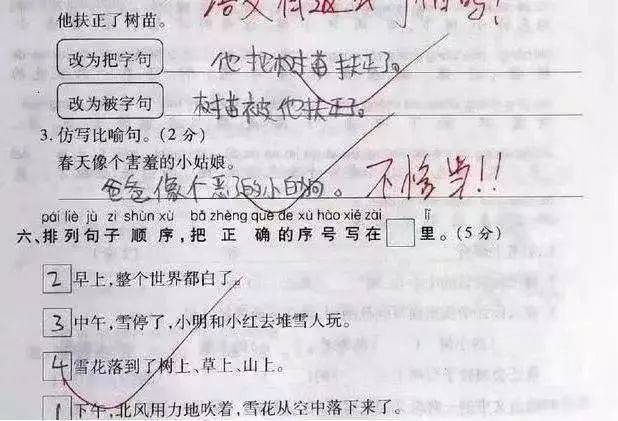 他扶正了树苗。
改为把字句 他把树苗扶正了。
改为被字句 树苗被他扶正了。
3.仿写比喻句。(2分)
春天像个害羞的小姑娘。
爸爸像个恶了的小白狗。 不恰当!!
pái liè jù zi shùn xù bǎ zhèng què de xù hào xiě zài lǐ
六、排列句子顺序,把正确的序号写在□里。(5分)
2 早上,整个世界都白了。
3 中午,雪停了,小明和小红去堆雪人玩。
4 雪花落到了树上、草上、山上。
1 下午,北风用力地吹着,雪花从空中落下来了。